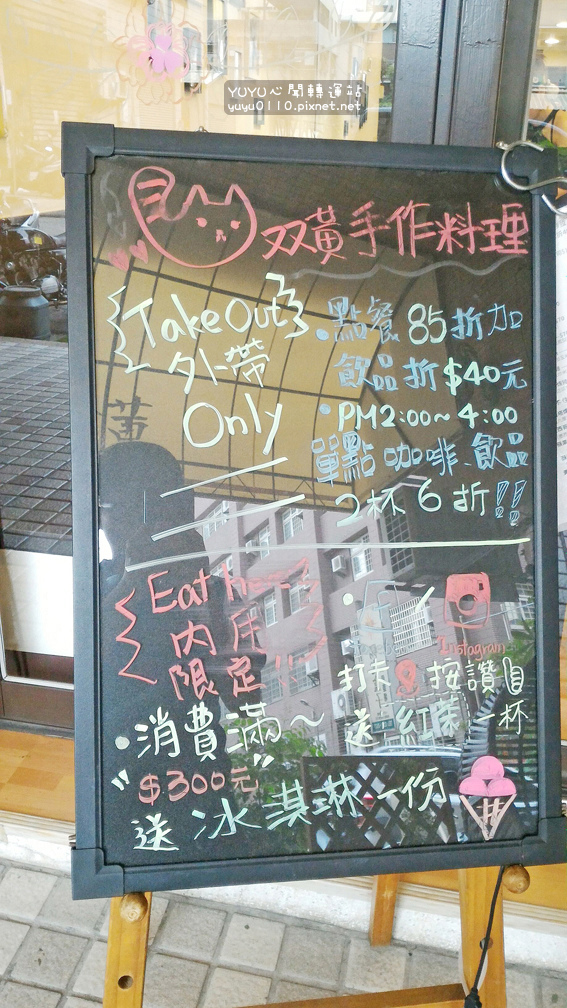 YUYU心聞轉運站
yuyu0110.pixnet.net
双黃手作料理
Take Out
外帶
Only
•點餐85折加
飲品折$40元
•PM2:00~4:00
單點咖啡、飲品
2杯6折!!
Eat here
內用
限定!!
•消費滿~
"$300元"
送冰淇淋一份
Instagram
打卡 按讚
送紅茶一杯